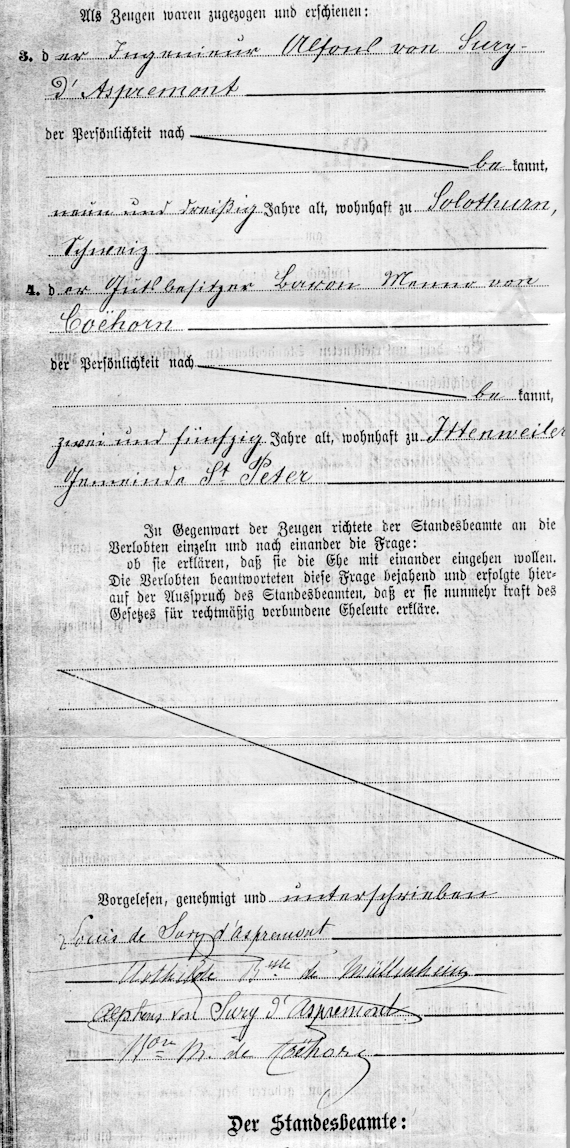 Als Zeugen waren zugezogen und erschienen:
3. der Ingenieur Alfons von Sury-
d'Aspremont
der Persönlichkeit nach
be kannt,
neun und dreißig Jahre alt, wohnhaft zu Solothurn,
Schweiz
4. der Gutsbesitzer Baron Menno von
Coëhorn
der Persönlichkeit nach
be kannt,
zwei und fünfzig Jahre alt, wohnhaft zu Ittenweiler
Gemeinde St Peter
In Gegenwart der Zeugen richtete der Standesbeamte an die
Verlobten einzeln und nach einander die Frage:
ob sie erklären, daß sie die Ehe mit einander eingehen wollen.
Die Verlobten beantworteten diese Frage bejahend und erfolgte hier-
auf der Ausspruch des Standesbeamten, daß er sie nunmehr kraft des
Gesetzes für rechtmäßig verbundene Eheleute erkläre.
Vorgelesen, genehmigt und unterschrieben
Louis de Sury d'aspremont
Clothilde Bnne de Müllenheim
Alphons von Sury d'Aspremont
Bon M. de Coëhorn
Der Standesbeamte: